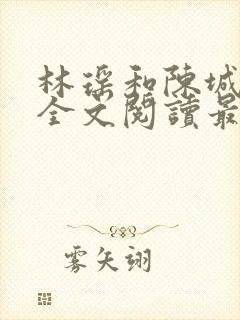 林瑶和陳城
全文閱讀最
雾矢翊